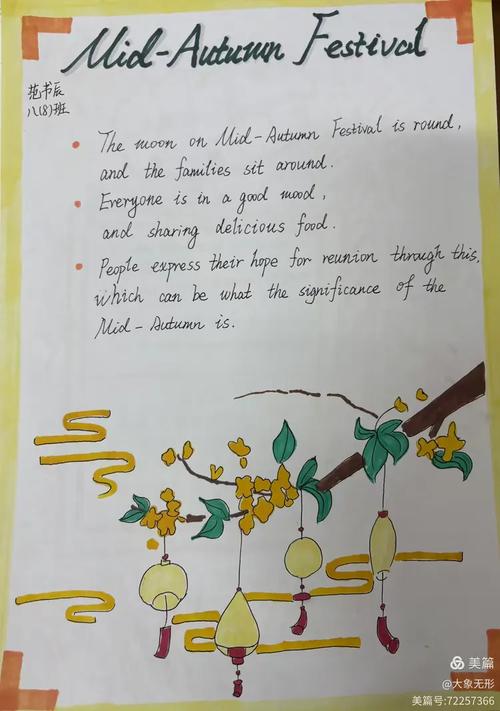 Mid-Autumn Festival
范书辰
八(8)班
The moon on Mid-Autumn Festival is round,
and the families sit around.
Everyone is in a good mood,
and sharing delicious food.
People express their hope for reunion through this,
which can be what the significance of the
Mid-Autumn is.
美篇
@大象无形
美篇号:72257366